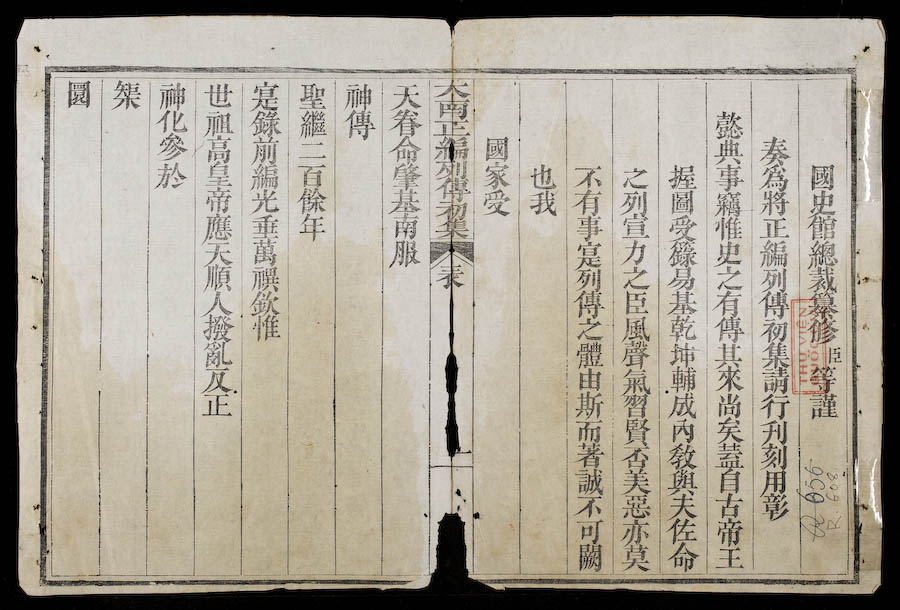 國史館總裁纂修臣等謹
奏爲將正編列傳初集請行刊刻用彰
懿典事竊惟史之有傳其來尚矣葢自古帝王
握圖受籙易基乾坤輔成內敎與夫佐命
之列宣力之臣風聲氣習賢否美惡亦莫
不有事寔列傳之體由斯而著誠不可闕
也我
國家受
大南正編列傳初集
表
一
天眷命肇基南服
神傳
聖繼二百餘年
寔錄前編光垂萬禩欽惟
世祖高皇帝應天順人撥亂反正
神化參於
槃
圜
THU VIEN
R 656
R. 609